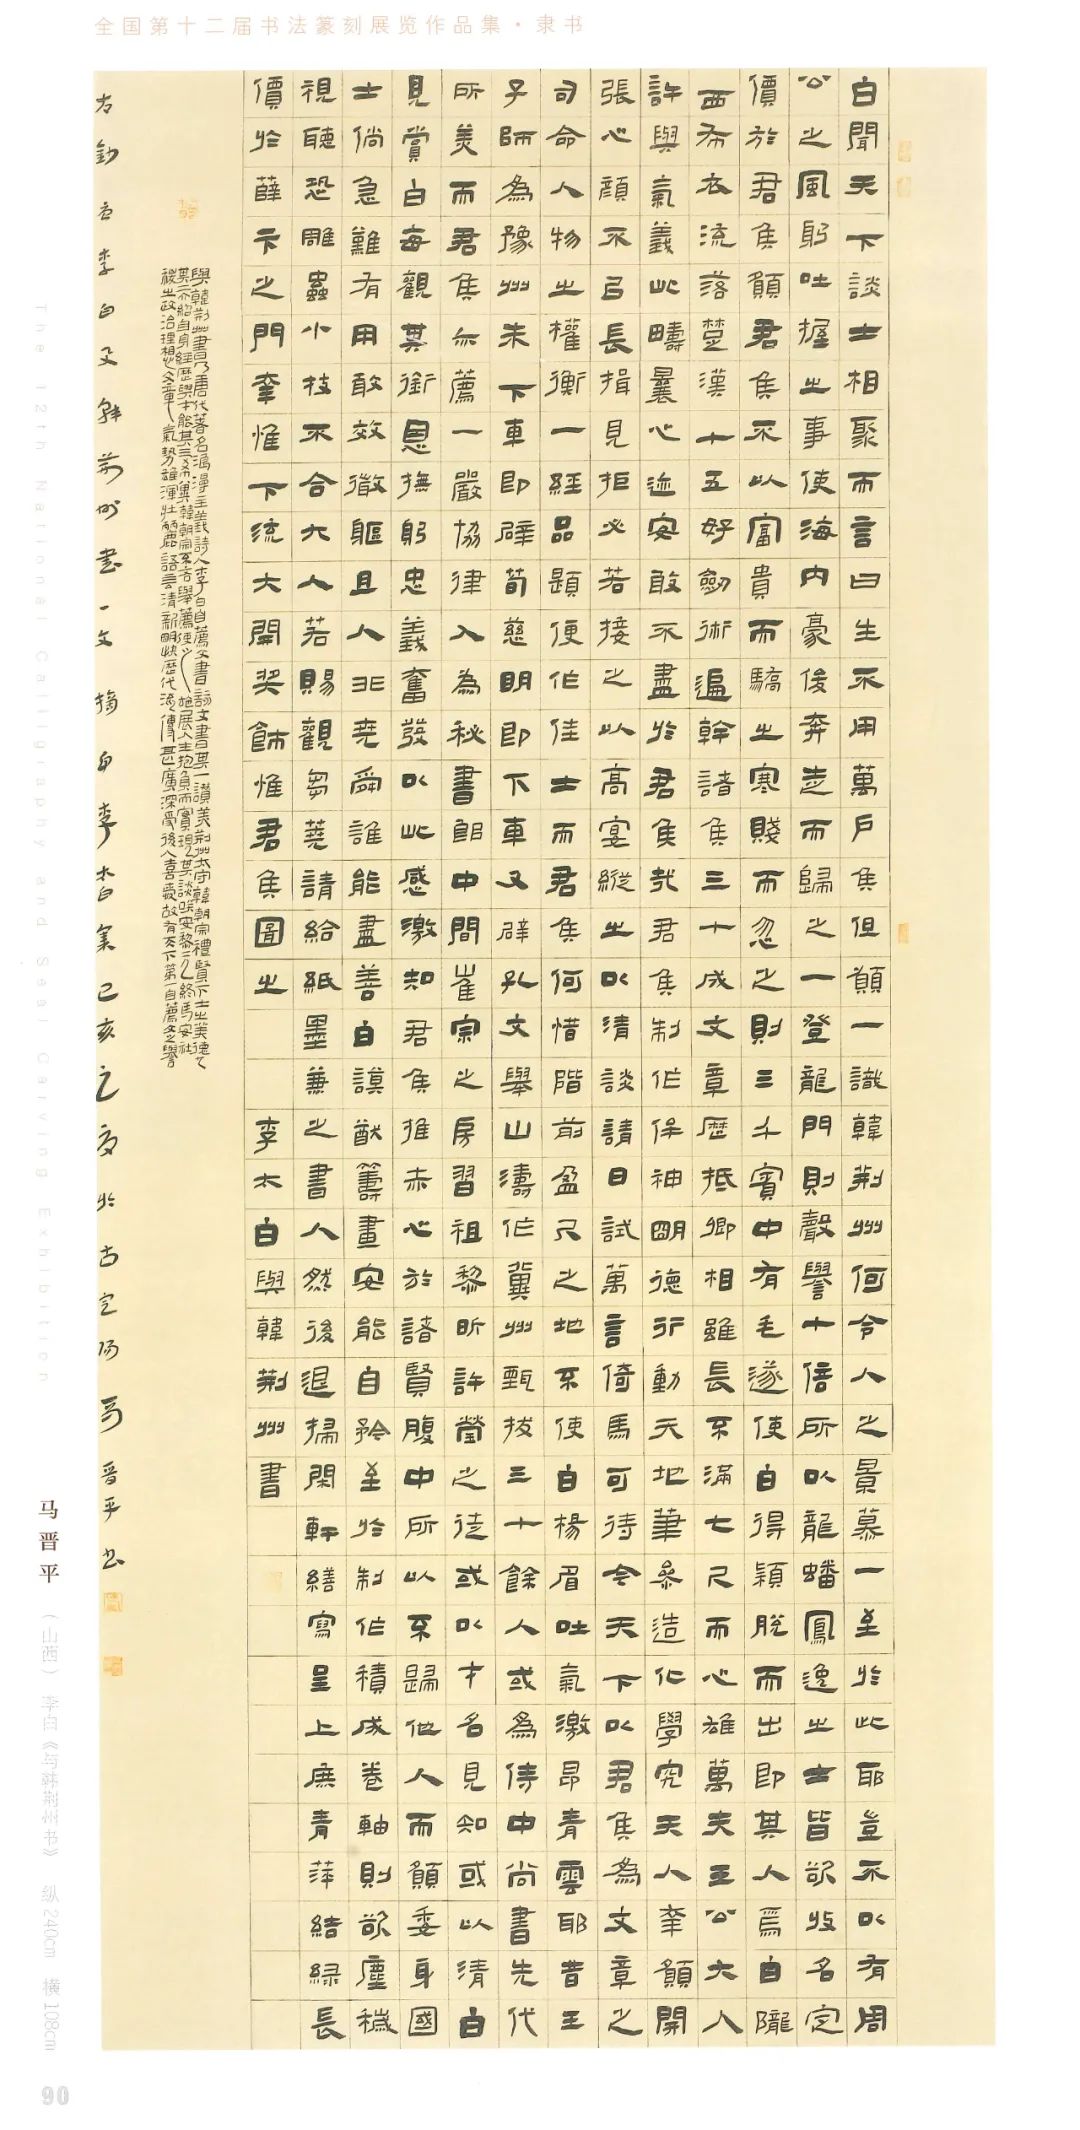 全国第十二届书法篆刻展览作品集·隶书
白聞天下談士相聚而言曰生不用萬戶侯但願一識韓荊州何令人之景慕一至於此耶豈不以有周
公之風躬吐握之事使海內豪俊奔走而歸之一登龍門則聲譽十倍所以龍蟠鳳逸之士皆欲收名定
價於君侯願君侯不以富貴而驕之寒賤而忽之則三千賓中有毛遂使白得穎脫而出即其人焉白隴
西布衣流落楚漢十五好劍術遍幹諸侯三十成文章歷抵卿相雖長不滿七尺而心雄萬夫王公大人
許與氣義此疇曩心迹安敢不盡於君侯哉君侯制作侔神明德行動天地筆參造化學究天人幸願開
張心顏不以長揖見拒必若接之以高宴縱之以清談請日試萬言倚馬可待今天下以君侯為文章之
司命人物之權衡一經品題便作佳士而君侯何惜階前盈尺之地不使白揚眉吐氣激昂青雲耶昔王
子師為豫州未下車即辟荀慈明即下車又辟孔文舉山濤作冀州甄拔三十餘人或為侍中尚書先代
所美而君侯亦薦一嚴協律入為秘書郎中間崔宗之房習祖黎昕許瑩之徒或以才名見知或以清白
見賞白每觀其銜恩撫躬忠義奮發以此感激知君侯推赤心於諸賢腹中所以不歸他人而願委身國
士倘急難有用敢效微軀且人非堯舜誰能盡善白謨猷籌畫安能自矜至於制作積成卷軸則欲塵穢
視聽恐雕蟲小技不合大人若賜觀芻蕘請給紙墨兼之書人然後退掃閑軒繕寫呈上庶青萍結綠長
價於薛卞之門幸惟下流大開奬飾惟君侯圖之 李太白與韓荊州書
與韓荆州書乃唐代著名浪漫主義詩人李白自薦文書該文書其一讚美荆州太守韓朝宗禮賢下士之美德
其二介紹自身經歷與才能其三希冀韓朝宗予舉薦使之施展人生抱負而實現其談笑安黎元終焉安社
稷之政治理想文章氣勢雄渾壯麗語言清新明快歷代流傳甚廣深受後人喜愛故有天下第一自薦文之譽
右錄李白與韓荊州書一文摘自李太白集己亥之夏於古定陽馬晉平書
The 12th National Calligraphy and Seal Carving Exhibition
马晋平（山西） 李白《与韩荆州书》 纵240cm 横108cm
90